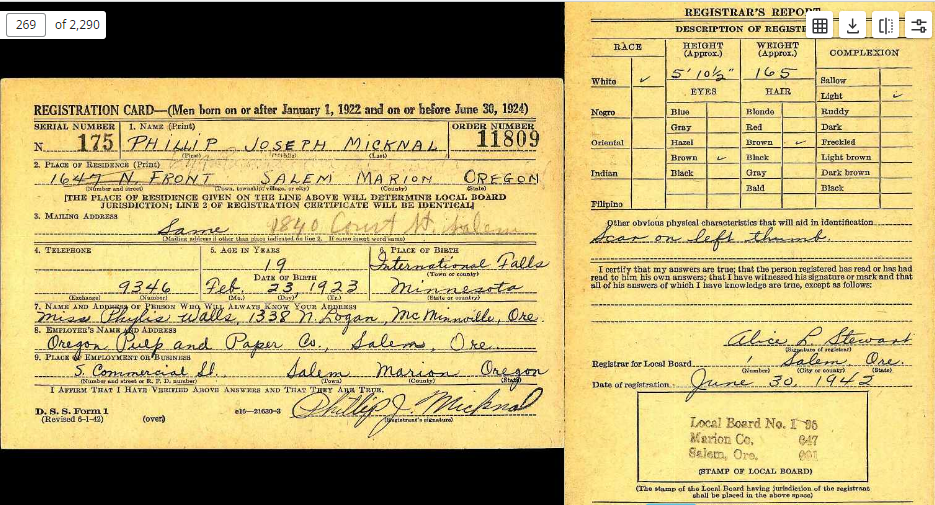 269 of 2,290
REGISTRATION CARD—(Men born on or after January 1, 1922 and on or before June 30, 1924)
SERIAL NUMBER
1. NAME (Print)
ORDER NUMBER
N. 175
PHILLIP JOSEPH MICKNAL
11809
(First) (Middle) (Last)
2. PLACE OF RESIDENCE (Print)
1647 N. FRONT SALEM MARION OREGON
(Number and street) (Town, township, village, or city) (County) (State)
[THE PLACE OF RESIDENCE GIVEN ON THE LINE ABOVE WILL DETERMINE LOCAL BOARD
JURISDICTION; LINE 2 OF REGISTRATION CERTIFICATE WILL BE IDENTICAL]
3. MAILING ADDRESS
Same 1840 Court St. Salem
(Mailing address if other than place indicated on line 2. If same insert word same)
4. TELEPHONE
5. AGE IN YEARS
6. PLACE OF BIRTH
19
International Falls
(Town or county)
DATE OF BIRTH
9346 Feb. 23, 1923 Minnesota
(Exchange) (Number) (Mo.) (Day) (Yr.) (State or country)
7. NAME AND ADDRESS OF PERSON WHO WILL ALWAYS KNOW YOUR ADDRESS
Miss Phylis Walls, 1338 N. Logan, McMinnville, Ore.
8. EMPLOYER'S NAME AND ADDRESS
Oregon Pulp and Paper Co., Salem, Ore.
9. PLACE OF EMPLOYMENT OR BUSINESS
S. Commercial St. Salem Marion Oregon
(Number and street or R. F. D. number) (Town) (County) (State)
I AFFIRM THAT I HAVE VERIFIED ABOVE ANSWERS AND THAT THEY ARE TRUE.
D. S. S. Form 1
(Revised 6-1-42) (over) e16—21630-2 Phillip J. Micknal
(Registrant's signature)
REGISTRAR'S REPORT
DESCRIPTION OF REGISTR
RACE
HEIGHT (Approx.)
WEIGHT (Approx.)
COMPLEXION
White ✓ 5' 10½" 165 Sallow
EYES HAIR Light ✓
Negro Blue Blonde Ruddy
Gray Red Dark
Oriental Hazel Brown ✓ Freckled
Brown ✓ Black Light brown
Indian Black Gray Dark brown
Bald Black
Filipino
Other obvious physical characteristics that will aid in identification
Scar on left thumb.
I certify that my answers are true; that the person registered has read or has had
read to him his own answers; that I have witnessed his signature or mark and that
all of his answers of which I have knowledge are true, except as follows:
Alice L. Stewart
(Signature of registrar)
Registrar for Local Board Salem, Ore.
(Number) (City or county) (State)
Date of registration June 30, 1942
Local Board No. 1 86
Marion Co. 047
Salem, Ore. 001
(STAMP OF LOCAL BOARD)
(The stamp of the Local Board having jurisdiction of the registrant
shall be placed in the above space)